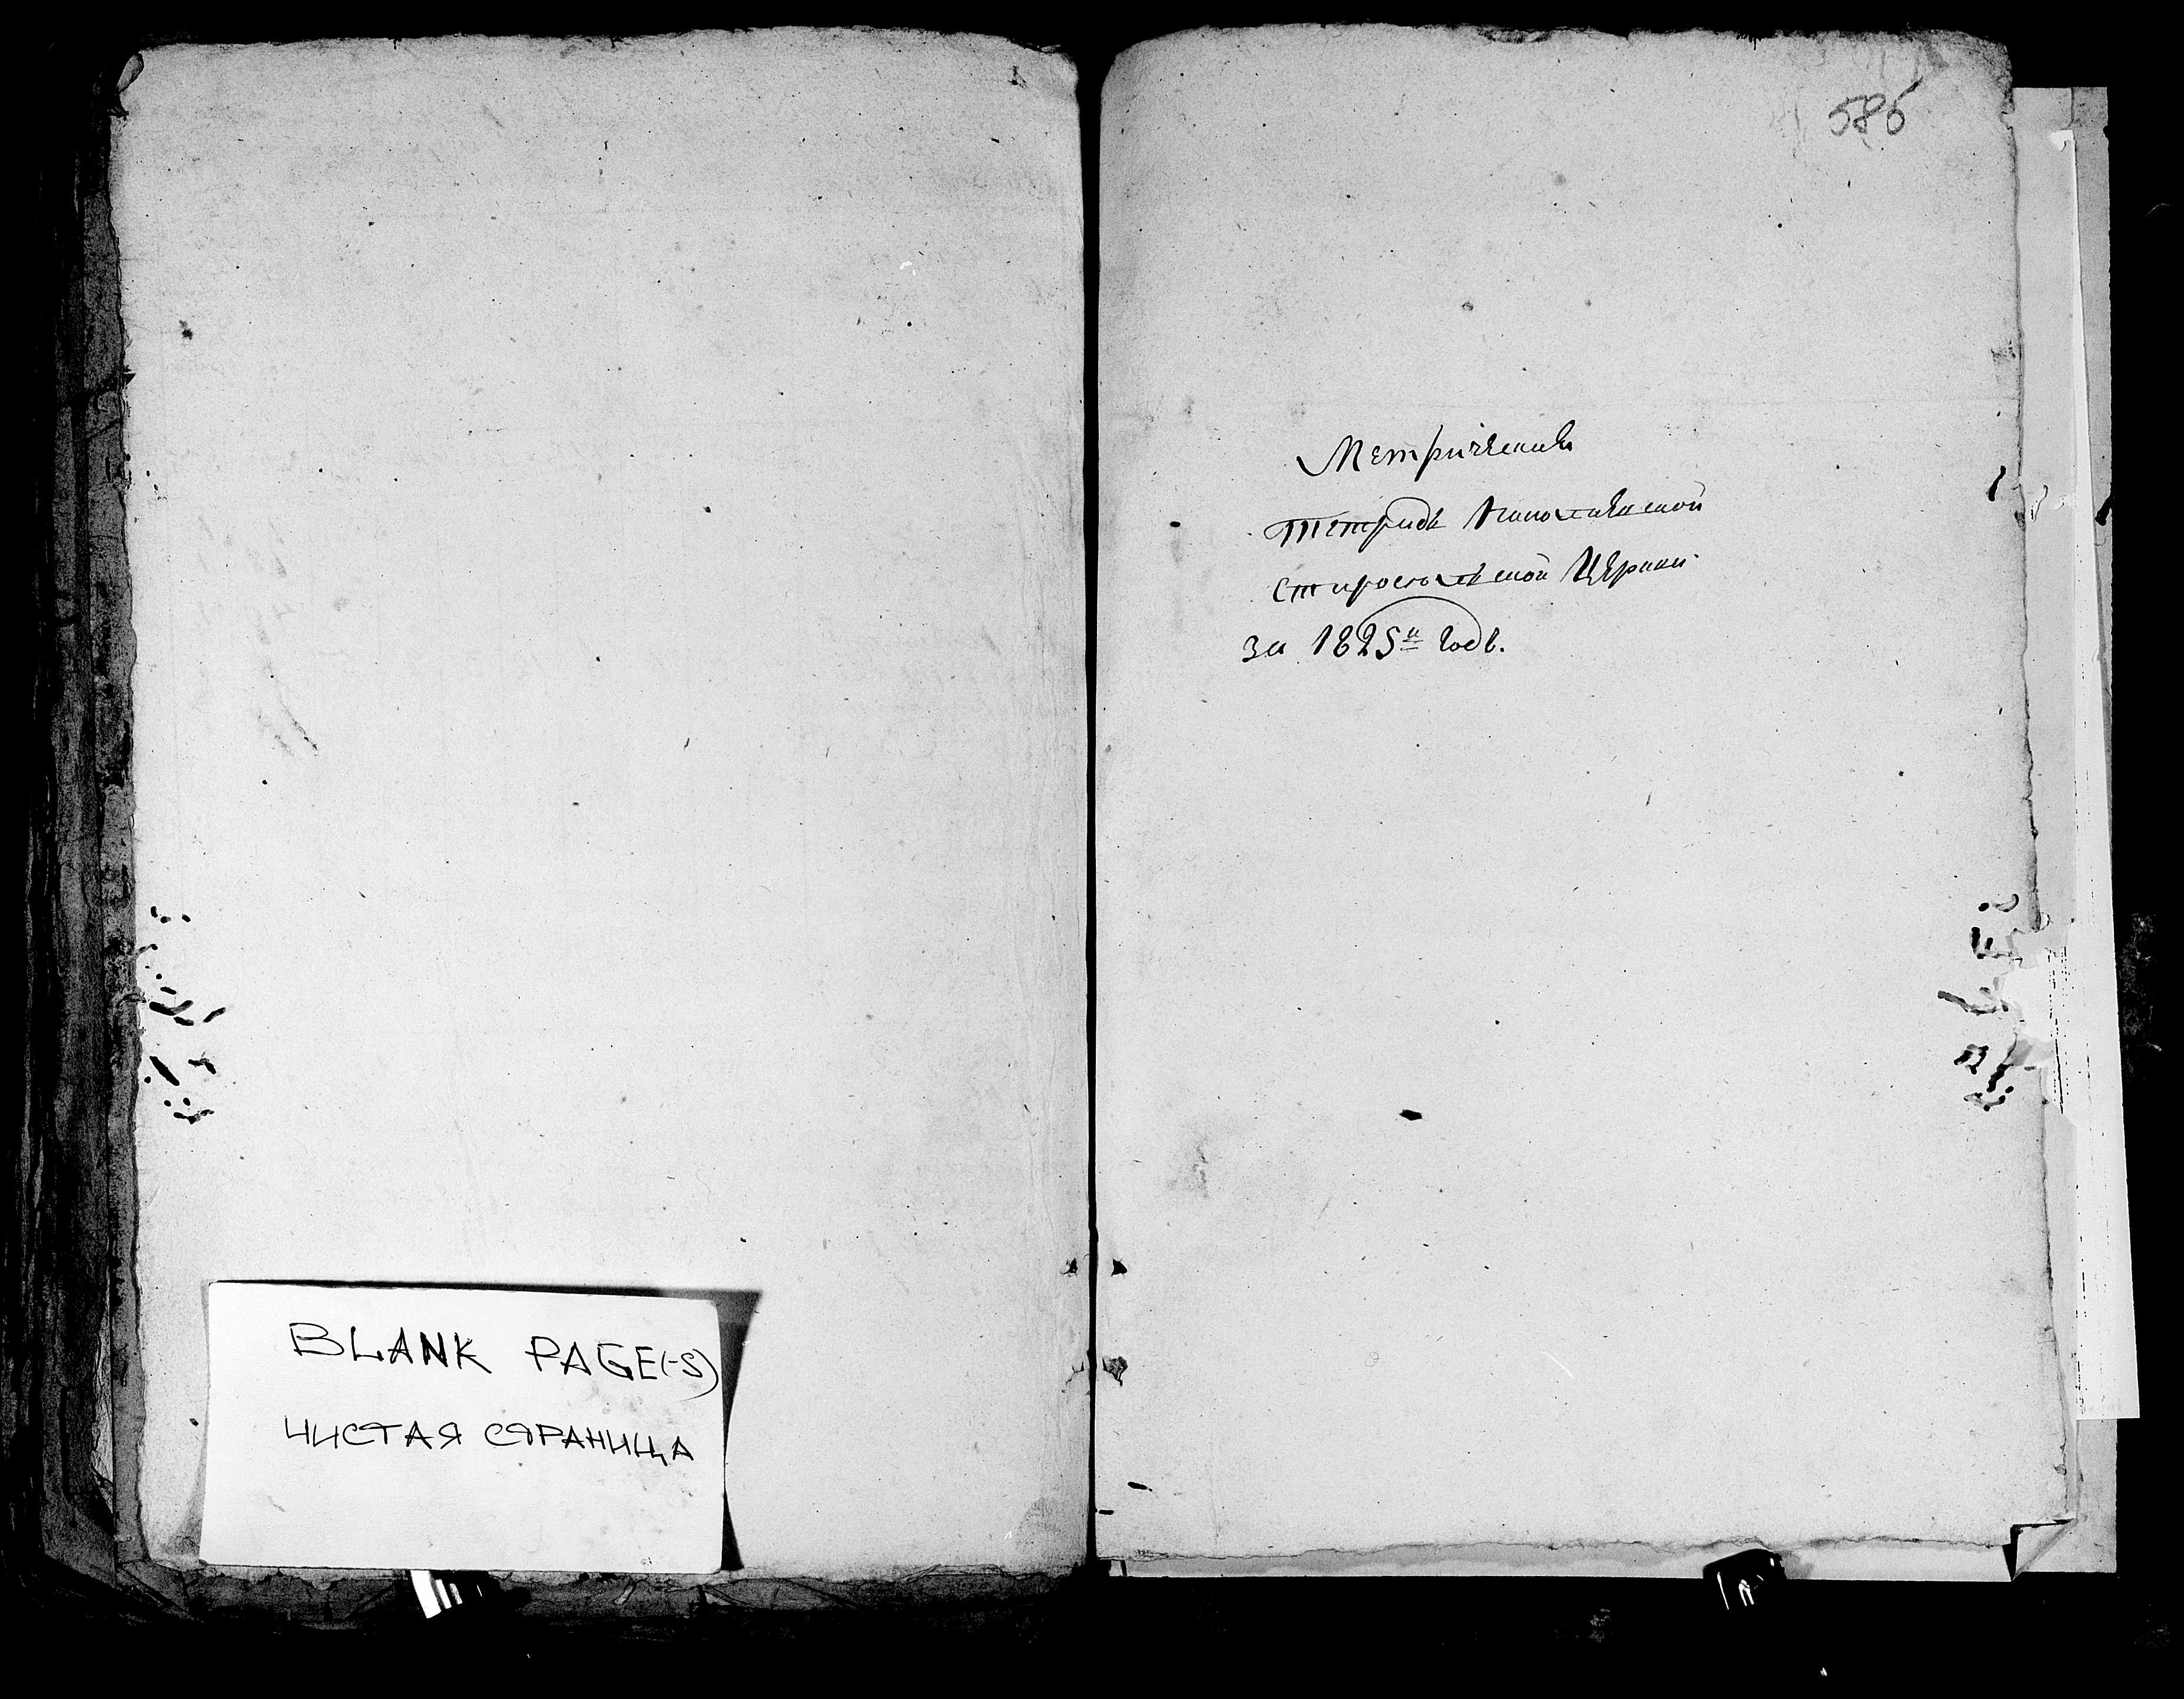 BLANK PAGE(-S)
ЧИСТАЯ СТРАНИЦА
586
Метрическая
тетрадь
Церкви
за 1825й годъ.